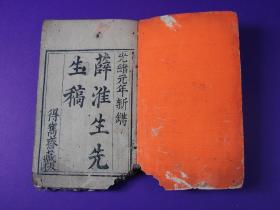 光緒元年新鐫
薛淮生先
生稿
得雋齋藏板